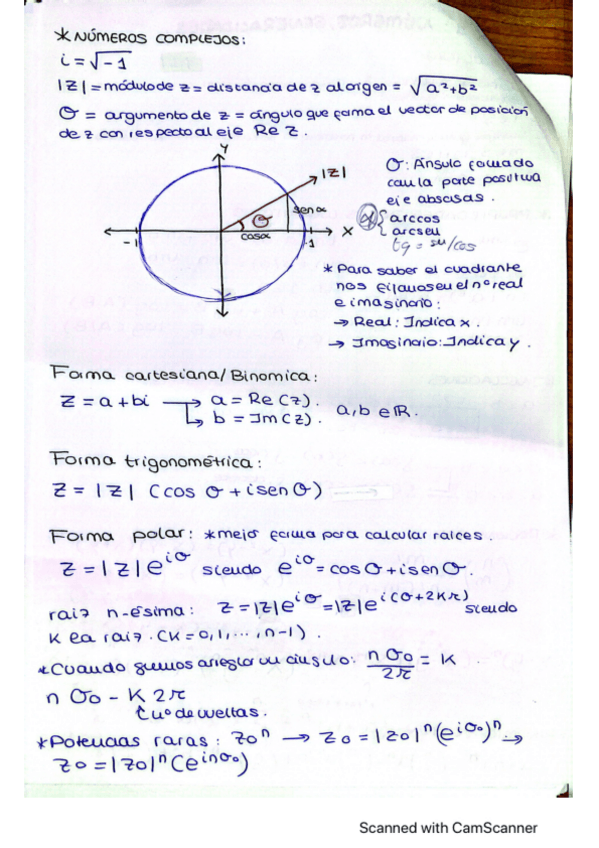 * NÚMEROS COMPLEJOS:
i = √-1
|Z| = módulo de z = distancia de z al orígen = √a²+b²
Θ = argumento de z = ángulo que forma el vector de posición
de z con respecto al eje Re z.
Y
|Z|
sen α
Θ
cosα
-1
1
X
Θ: Ángulo formado
con la parte positiva
eje abscisas.
α { arccos
arcsen
tg = sen/cos
* Para saber el cuadrante
nos fijamos en el nº real
e imaginario:
→ Real: Indica x.
→ Imaginario: Indica y.
Forma cartesiana/Binomica:
Z = a + bi → a = Re(z).
↳ b = Im(z).
a, b ∈ ℝ.
Forma trigonométrica:
Z = |Z| (cos Θ + i sen Θ)
Forma polar: * mejor forma para calcular raíces.
Z = |Z| e^iΘ siendo e^iΘ = cos Θ + i sen Θ.
raíz n-ésima: Z = |Z| e^iΘ = |Z| e^i(Θ+2Kπ) siendo
K la raíz. (K = 0, 1, ..., n-1).
* Cuando arreglar un ángulo: nΘ₀/2π = K
nΘ₀ - K 2π
↑ nº de vueltas.
* Potencias raras: z₀ⁿ → z₀ = |z₀|ⁿ (e^iΘ₀)ⁿ →
z₀ = |z₀|ⁿ (e^inΘ₀)
Scanned with CamScanner